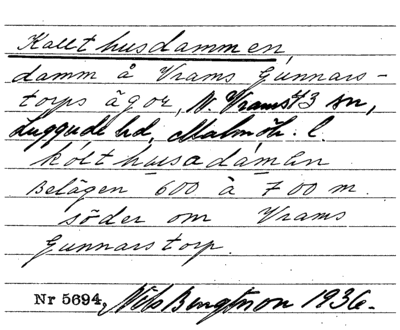 Kallthusdammen,
damm å Vrams Gunnars-
torps ägor, N. Vrams sn,
Luggude hd, Malmöh. l.
kólthusadámen
Belägen 600 à 700 m.
söder om Vrams
Gunnarstorp.
Nr 5694, Nils Bengtsson 1936.